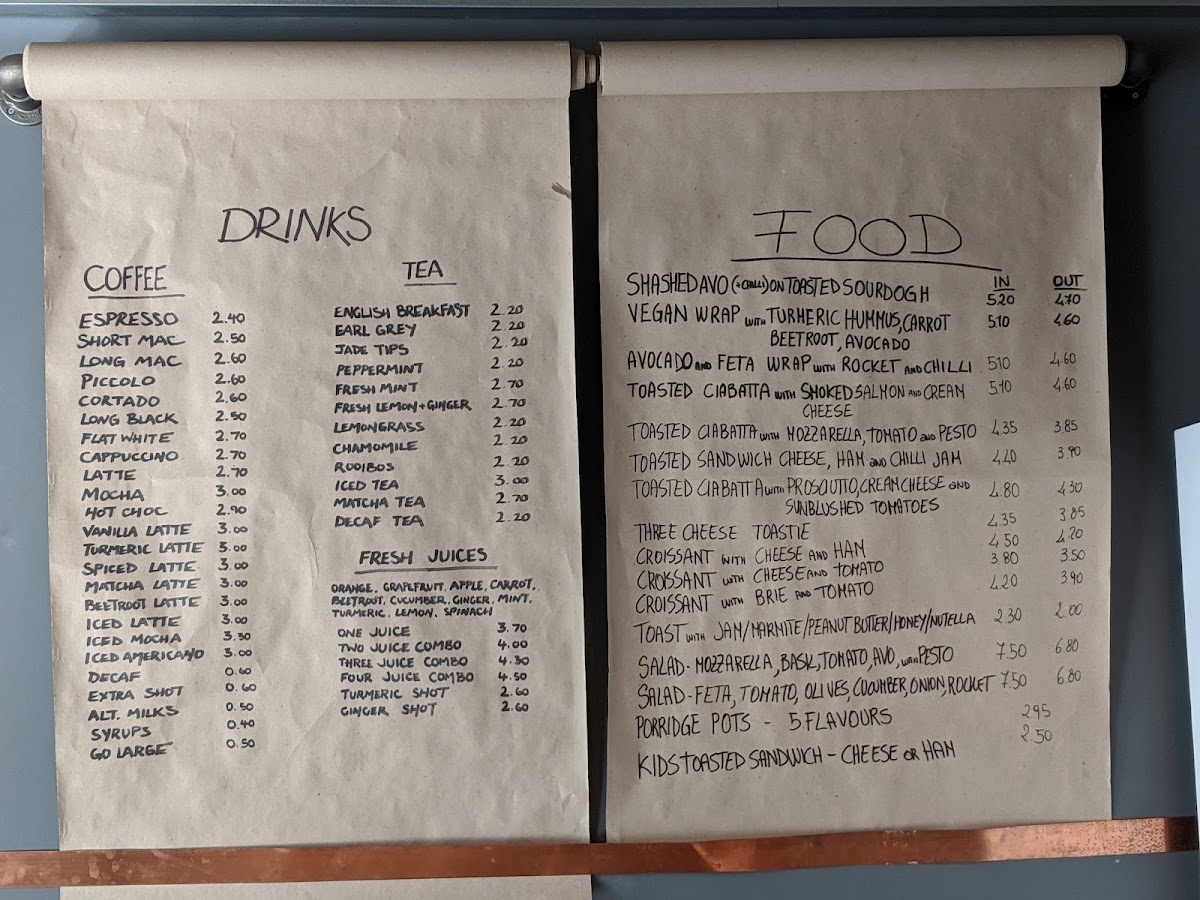 DRINKS
COFFEE
ESPRESSO 2.40
SHORT MAC 2.50
LONG MAC 2.60
PICCOLO 2.60
CORTADO 2.60
LONG BLACK 2.50
FLAT WHITE 2.70
CAPPUCCINO 2.70
LATTE 2.70
MOCHA 3.00
HOT CHOC 2.90
VANILLA LATTE 3.00
TURMERIC LATTE 3.00
SPICED LATTE 3.00
MATCHA LATTE 3.00
BEETROOT LATTE 3.00
ICED LATTE 3.00
ICED MOCHA 3.50
ICED AMERICANO 3.00
DECAF 0.60
EXTRA SHOT 0.60
ALT. MILKS 0.50
SYRUPS 0.40
GO LARGE 0.50
TEA
ENGLISH BREAKFAST 2.20
EARL GREY 2.20
JADE TIPS 2.20
PEPPERMINT 2.20
FRESH MINT 2.70
FRESH LEMON + GINGER 2.70
LEMONGRASS 2.20
CHAMOMILE 2.20
ROOIBOS 2.20
ICED TEA 3.00
MATCHA TEA 2.70
DECAF TEA 2.20
FRESH JUICES
ORANGE, GRAPEFRUIT, APPLE, CARROT,
BEETROOT, CUCUMBER, GINGER, MINT,
TURMERIC, LEMON, SPINACH
ONE JUICE 3.70
TWO JUICE COMBO 4.00
THREE JUICE COMBO 4.30
FOUR JUICE COMBO 4.50
TURMERIC SHOT 2.60
GINGER SHOT 2.60
FOOD
IN OUT
SMASHED AVO (+CHILLI) ON TOASTED SOURDOGH 5.20 4.70
VEGAN WRAP WITH TURMERIC HUMMUS, CARROT 5.10 4.60
BEETROOT, AVOCADO
AVOCADO AND FETA WRAP WITH ROCKET AND CHILLI 5.10 4.60
TOASTED CIABATTA WITH SMOKED SALMON AND CREAM 5.10 4.60
CHEESE
TOASTED CIABATTA WITH MOZZARELLA, TOMATO AND PESTO 4.35 3.85
TOASTED SANDWICH CHEESE, HAM AND CHILLI JAM 4.40 3.90
TOASTED CIABATTA WITH PROSCIUTTO, CREAM CHEESE AND 4.80 4.30
SUNBLUSHED TOMATOES
THREE CHEESE TOASTIE 4.35 3.85
CROISSANT WITH CHEESE AND HAM 4.50 4.20
CROISSANT WITH CHEESE AND TOMATO 3.80 3.50
CROISSANT WITH BRIE AND TOMATO 4.20 3.90
TOAST WITH JAM/MARMITE/PEANUT BUTTER/HONEY/NUTELLA 2.30 2.00
SALAD - MOZZARELLA, BASIL, TOMATO, AVO, WITH PESTO 7.50 6.80
SALAD - FETA, TOMATO, OLIVES, CUCUMBER, ONION, ROCKET 7.50 6.80
PORRIDGE POTS - 5 FLAVOURS 2.95
KIDS TOASTED SANDWICH - CHEESE OR HAM 2.50